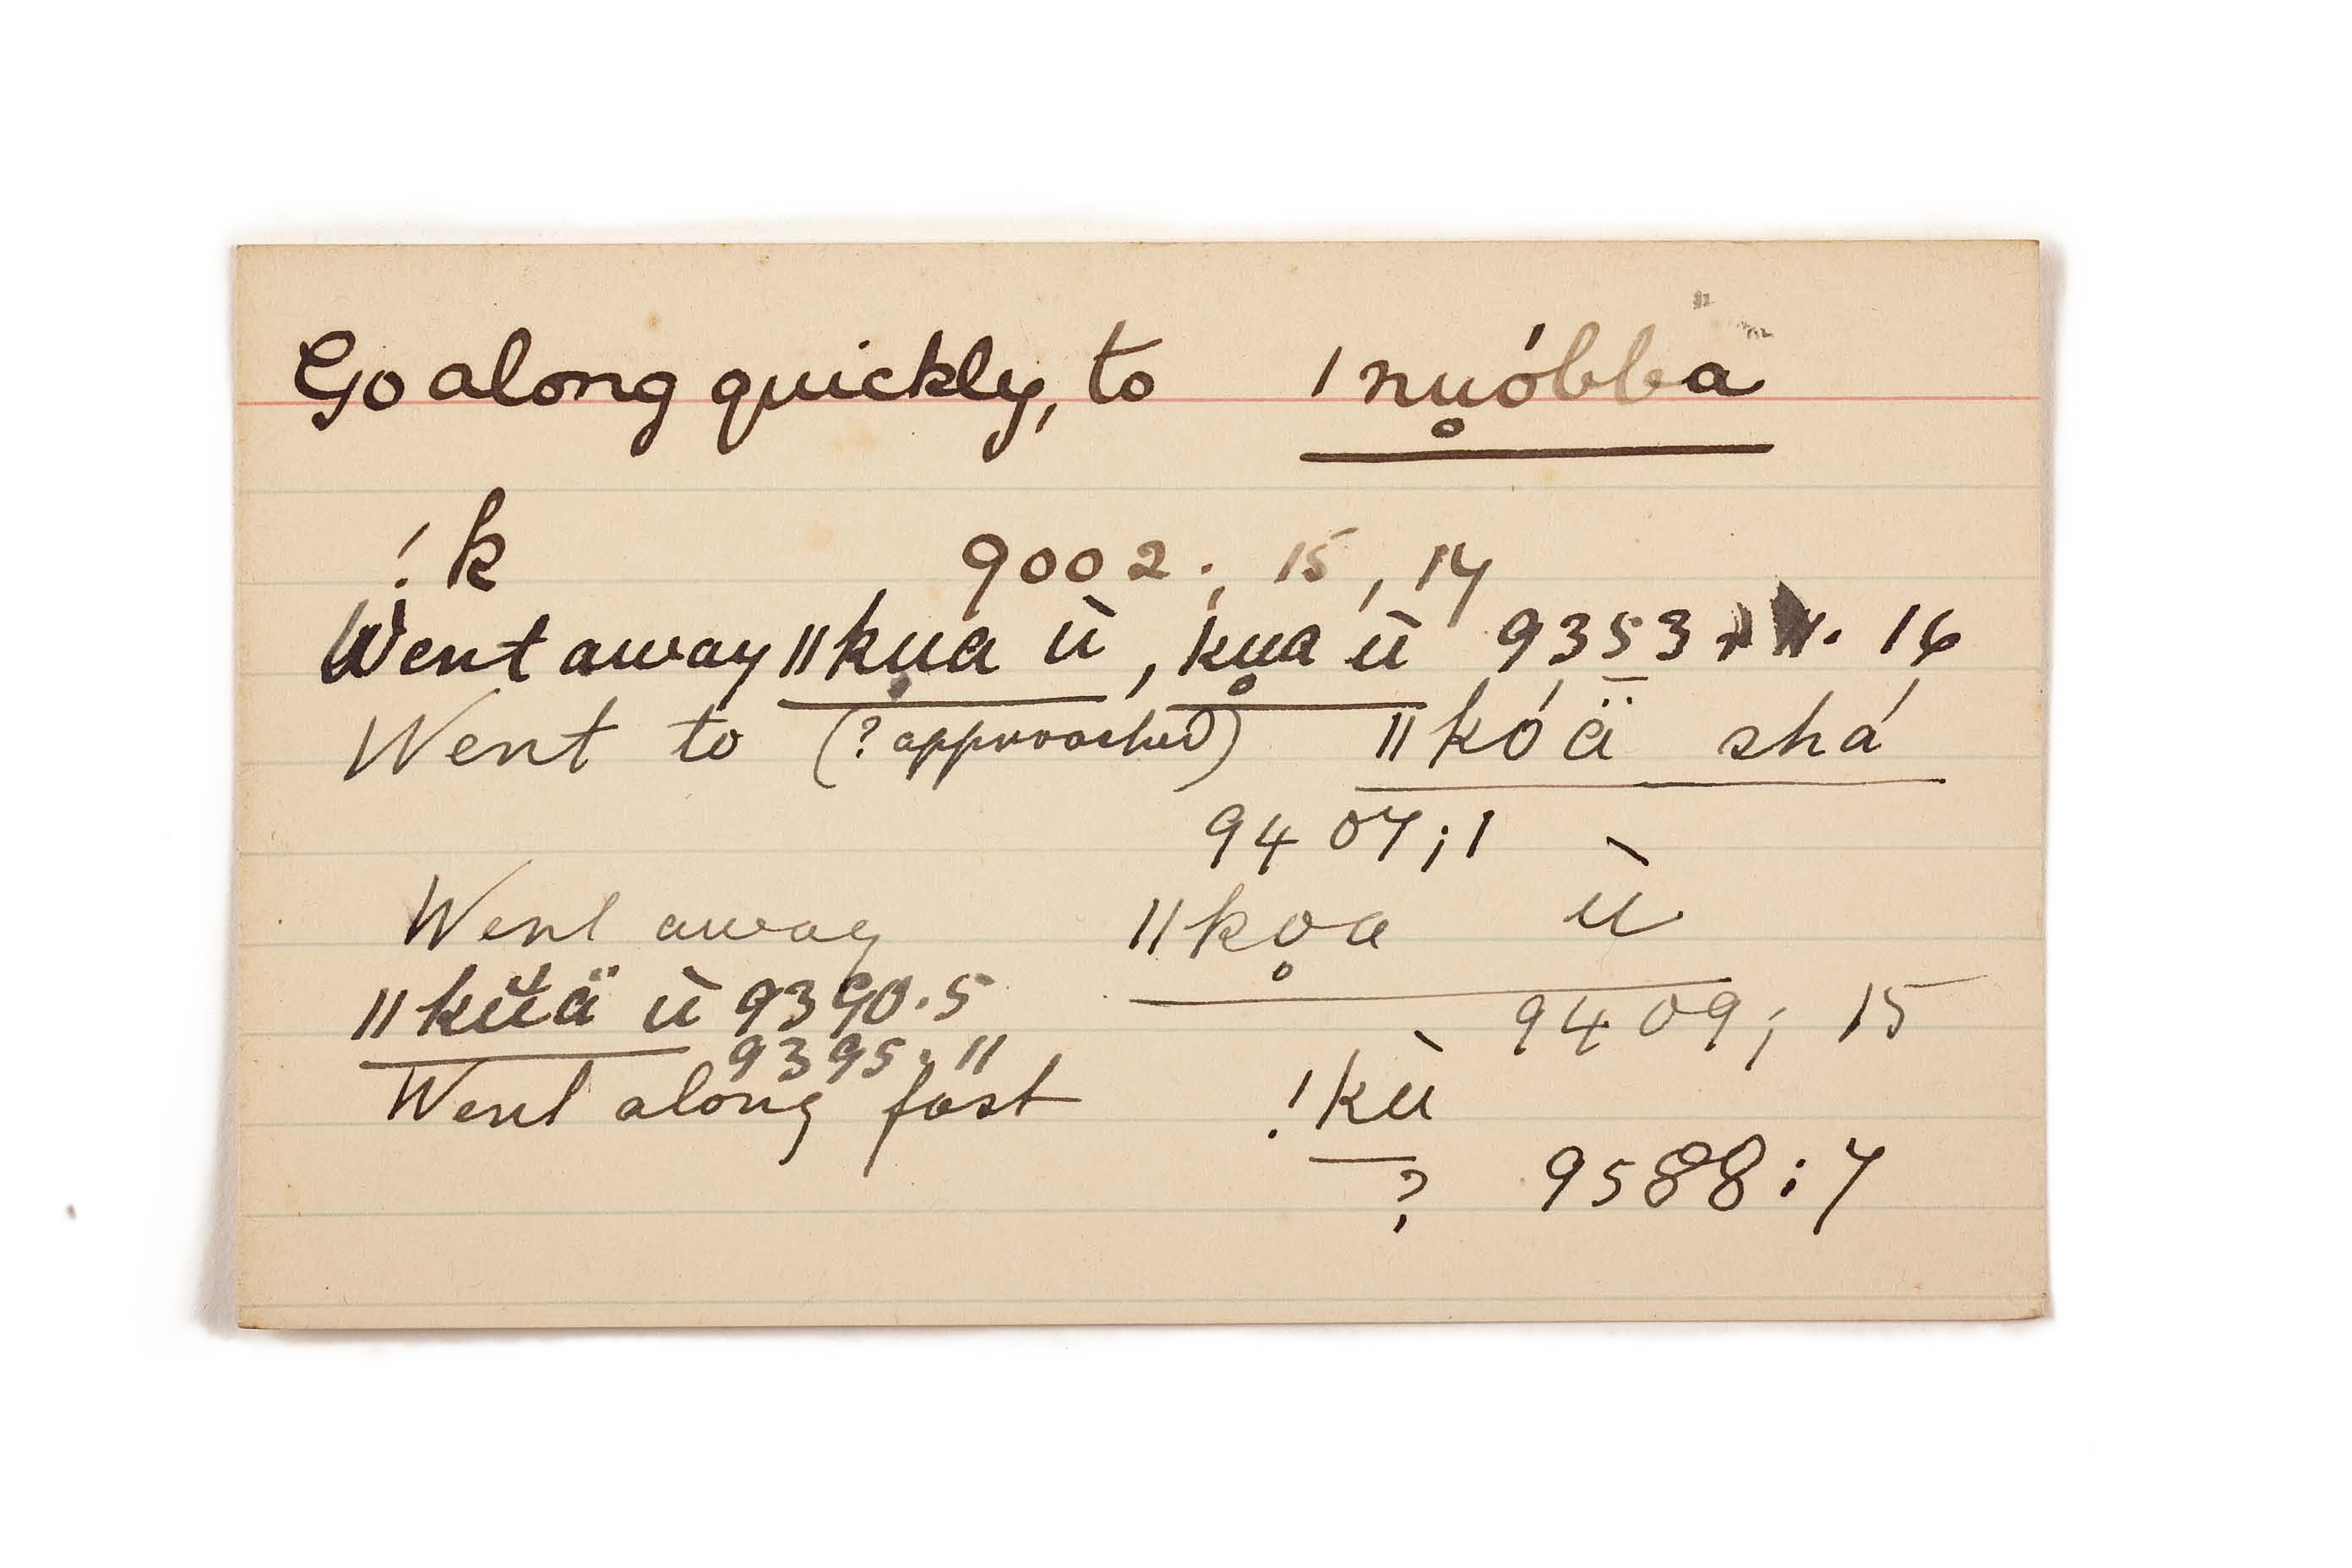 Go along quickly, to ǀnu̥óbba
!k 9002; 15, 17
Went away ǁku̥a ù, ku̥a ù 9353. 16
Went to (? approached) ǁkóä shá
9407; 1
Went away ǁko̥a ù
ǁkŭä ù 9390. 5 9409; 15
9395; 11
Went along fast !kù
? 9588; 7